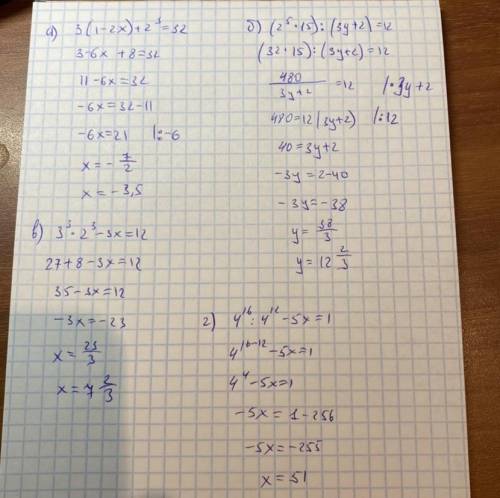 а) 3(1-2x)+2³=32
3-6x+8=32
11-6x=32
-6x=32-11
-6x=21 |:-6
x=-7/2
x=-3,5
б) (2⁵·15):(3y+2)=12
(32·15):(3y+2)=12
480/3y+2=12 |·3y+2
480=12(3y+2) |:12
40=3y+2
-3y=2-40
-3y=-38
y=38/3
y=12 2/3
в) 3³·2³-3x=12
27+8-3x=12
35-3x=12
-3x=-23
x=23/3
x=7 2/3
г) 4¹⁶:4¹²-5x=1
4¹⁶⁻¹²-5x=1
4⁴-5x=1
-5x=1-256
-5x=-255
x=51